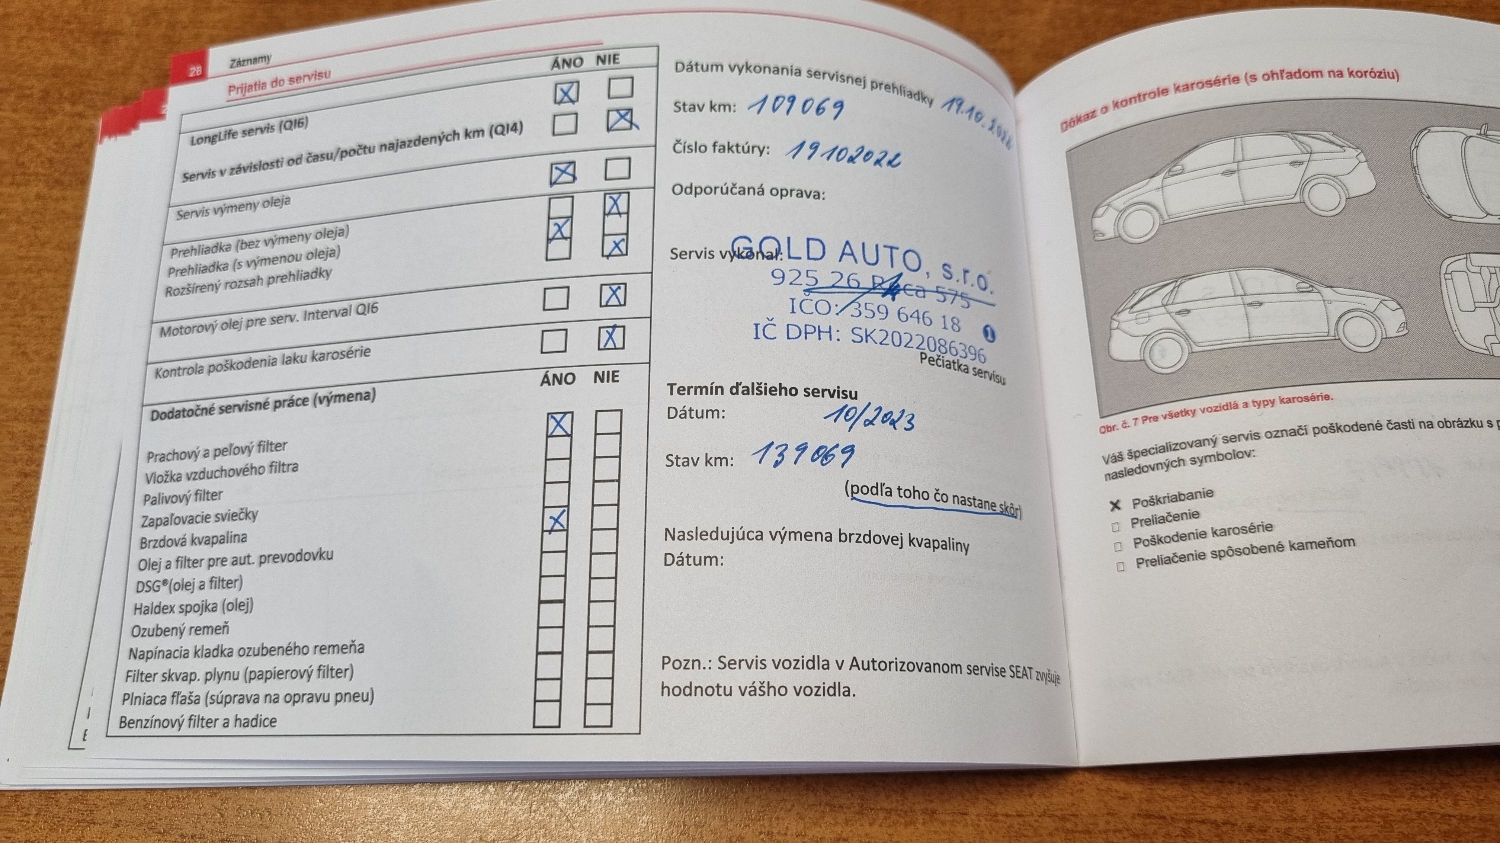 28
Záznamy
Prijatia do servisu
ÁNO NIE
LongLife servis (QI6)
Servis v závislosti od času/počtu najazdených km (QI4)
Servis výmeny oleja
Prehliadka (bez výmeny oleja)
Prehliadka (s výmenou oleja)
Rozšírený rozsah prehliadky
Motorový olej pre serv. Interval QI6
Kontrola poškodenia laku karosérie
ÁNO NIE
Dodatočné servisné práce (výmena)
Prachový a peľový filter
Vložka vzduchového filtra
Palivový filter
Zapaľovacie sviečky
Brzdová kvapalina
Olej a filter pre aut. prevodovku
DSG®(olej a filter)
Haldex spojka (olej)
Ozubený remeň
Napínacia kladka ozubeného remeňa
Filter skvap. plynu (papierový filter)
Plniaca fľaša (súprava na opravu pneu)
Benzínový filter a hadice
Dátum vykonania servisnej prehliadky 19.10.2022
Stav km: 109069
Číslo faktúry: 19102022
Odporúčaná oprava:
Servis vykonal:
GOLD AUTO, s.r.o.
925 26 575
IČO: 359 646 18
IČ DPH: SK2022086396
Pečiatka servisu
Termín ďalšieho servisu
Dátum: 10/2023
Stav km: 139069
(podľa toho čo nastane skôr)
Nasledujúca výmena brzdovej kvapaliny
Dátum:
Pozn.: Servis vozidla v Autorizovanom servise SEAT zvyšuje
hodnotu vášho vozidla.
Dôkaz o kontrole karosérie (s ohľadom na koróziu)
Obr. č. 7 Pre všetky vozidlá a typy karosérie.
Váš špecializovaný servis označí poškodené časti na obrázku s
nasledovných symbolov:
Poškriabanie
Preliačenie
Poškodenie karosérie
Preliačenie spôsobené kameňom